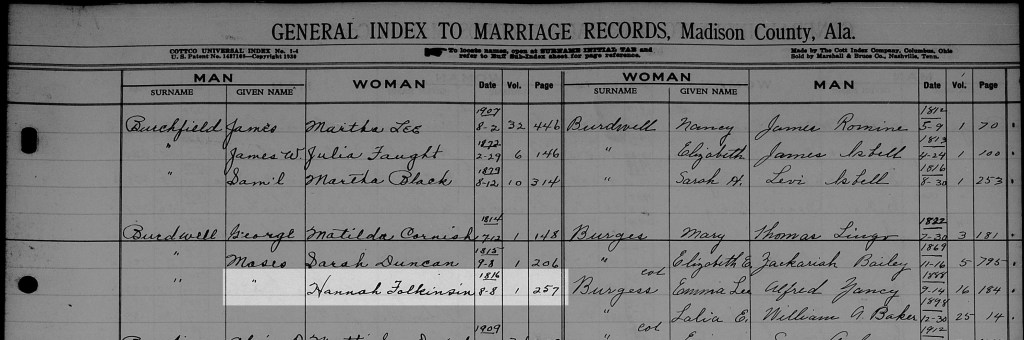 GENERAL INDEX TO MARRIAGE RECORDS, Madison County, Ala.
COTTCO UNIVERSAL INDEX No. 1-4
To locate names, open at SURNAME INITIAL TAB and
Made by The Cott Index Company, Columbus, Ohio
refer to Buff Sub-Index sheet for page reference.
Sold by Marshall & Bruce Co., Nashville, Tenn.
MAN WOMAN Date Vol. Page WOMAN MAN Date Vol. Page
SURNAME GIVEN NAME SURNAME GIVEN NAME
1907 1812
Burchfield James Martha Lee 8-2 32 446 Burdwell Nancy James Romine 5-9 1 70
1872 1813
" James W. Julia Faught 2-29 6 146 " Elizabeth James Isbell 4-24 1 100
1829 1816
" Sam'l Martha Black 8-12 10 314 " Sarah H. Levi Isbell 8-30 1 253
1814 1822
Burdwell George Matilda Cornish 7-12 1 148 Burges Mary Thomas Lingo 7-30 3 181
1815 1869
" Moses Sarah Duncan 9-8 1 206 " col Elizabeth E. Zackariah Bailey 11-16 5 795
1816 1888
" " Hannah Folkinsin 8-8 1 257 Burgess Emma Lee Alfred Yancy 9-14 16 184
1898
" col Lalia E. William A Baker 12-30 25 14
1909 1912